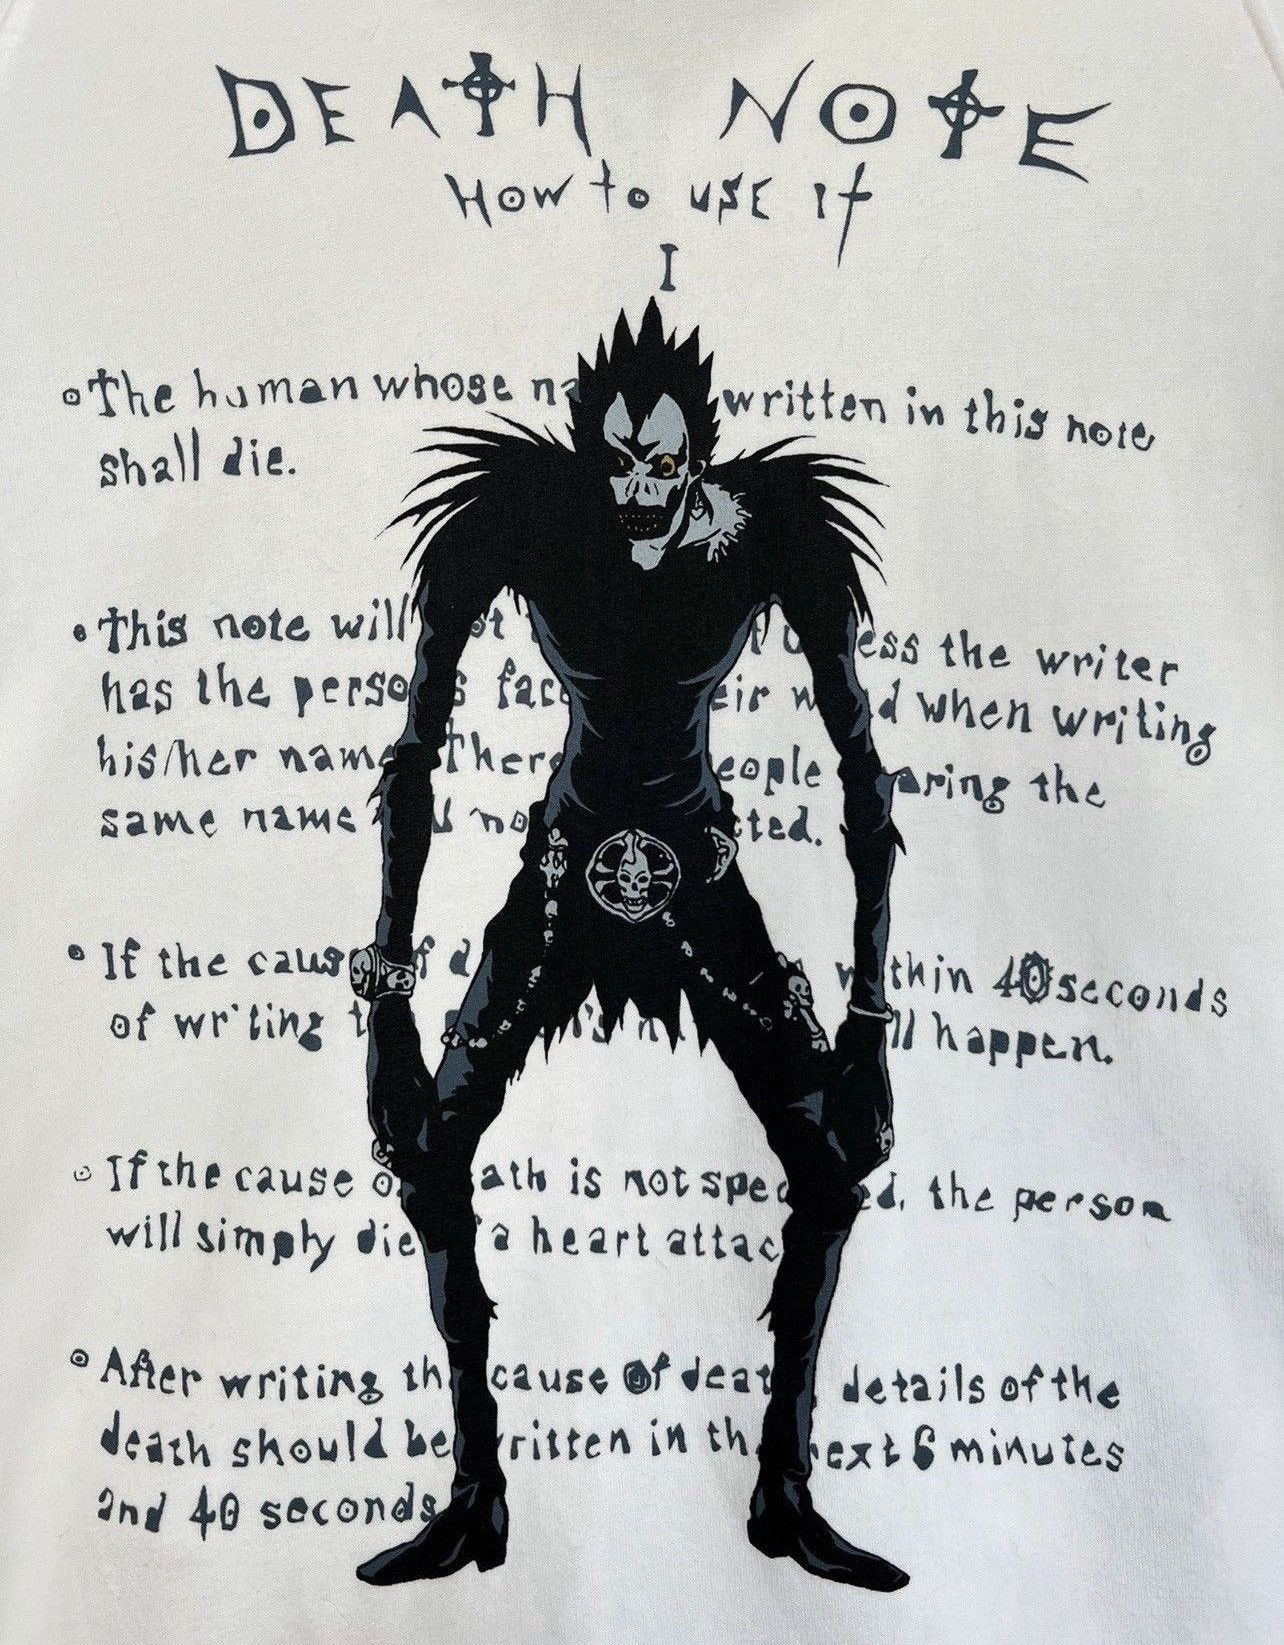 DEATH NOTE
How to use it
I
The human whose na written in this note
shall die.
This note will unless the writer
has the person's face their mind when writing
his/her name. There people sharing the
same name no cted.
If the cause of d within 40 seconds
of writing t happen.
If the cause of death is not specified, the person
will simply die a heart attac
After writing the cause of death, details of the
death should be written in the next 6 minutes
and 40 seconds